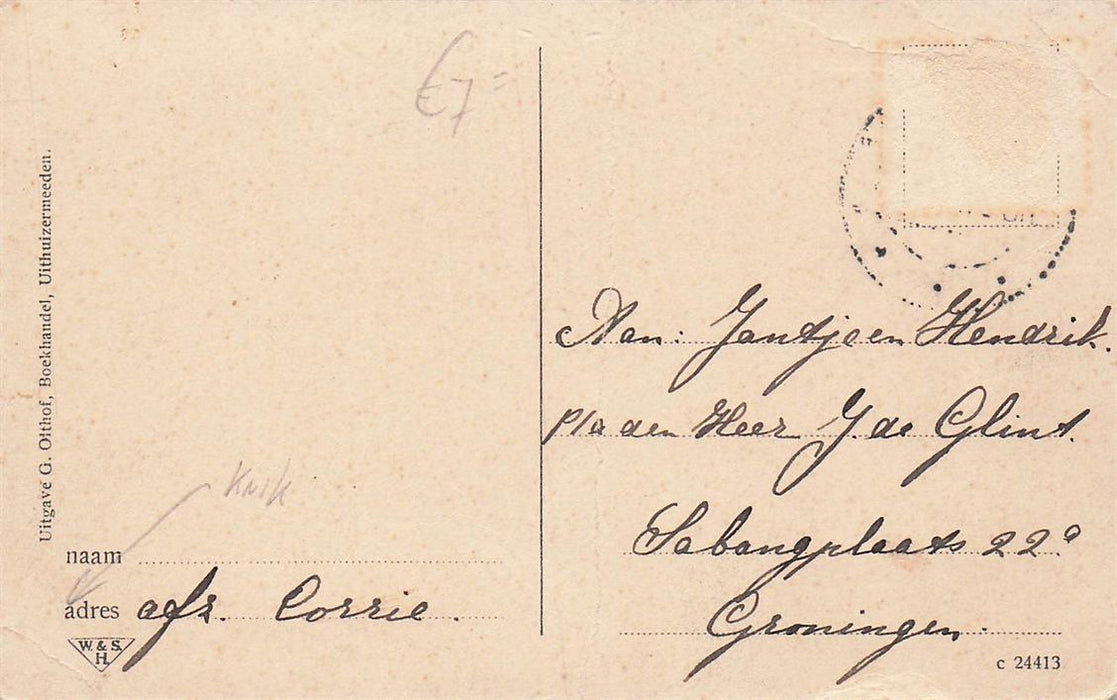 €7=
Uitgave G. Olthof, Boekhandel, Uithuizermeeden.
Aan: Jantje en Hendrik.
p/a den Heer J de Glint.
Sabangplaats 22a
Groningen.
Knik
naam
adres afz. Corrie.
W. & S.
H.
c 24413